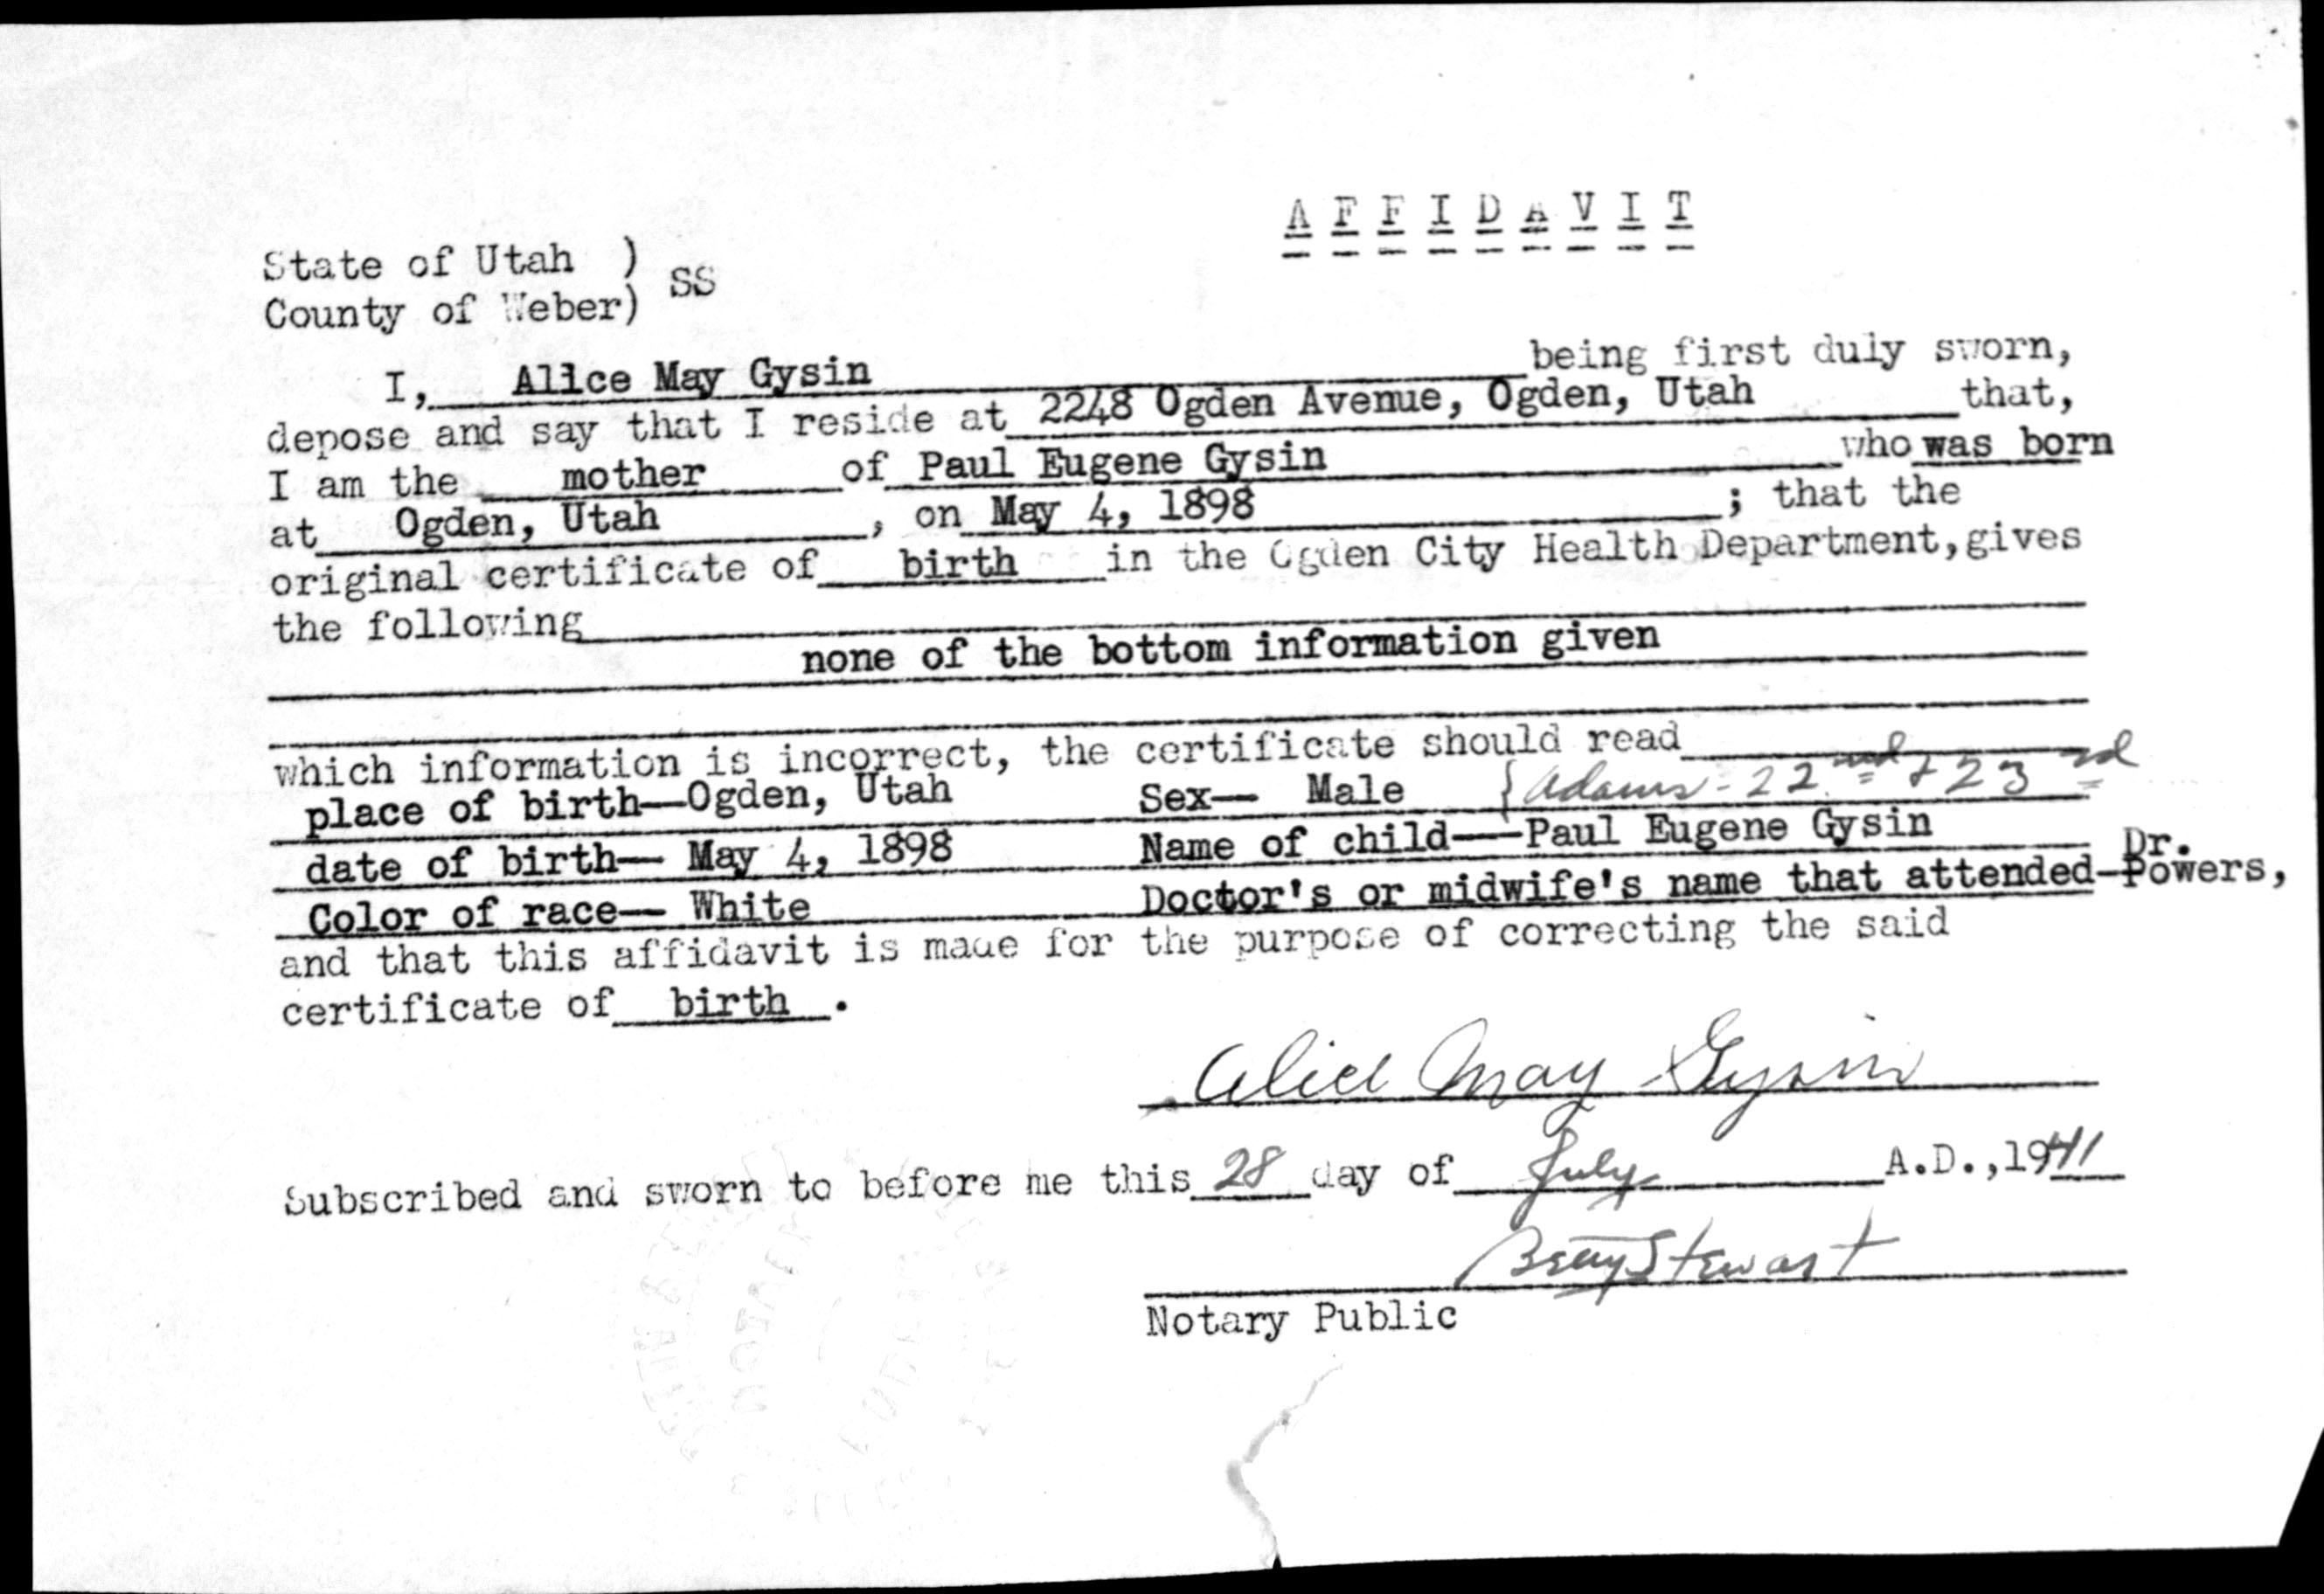 AFFIDAVIT
State of Utah ) SS
County of Weber)
I, Alice May Gysin being first duly sworn,
depose and say that I reside at 2248 Ogden Avenue, Ogden, Utah that,
I am the mother of Paul Eugene Gysin who was born
at Ogden, Utah, on May 4, 1898; that the
original certificate of birth in the Ogden City Health Department, gives
the following
none of the bottom information given
which information is incorrect, the certificate should read
place of birth—Ogden, Utah Sex— Male { Adams - 22nd + 23rd
date of birth— May 4, 1898 Name of child——Paul Eugene Gysin
Color of race— White Doctor's or midwife's name that attended—Dr. Powers,
and that this affidavit is made for the purpose of correcting the said
certificate of birth.
Alice May Gysin
Subscribed and sworn to before me this 28 day of July A.D., 1941
Betty Stewart
Notary Public